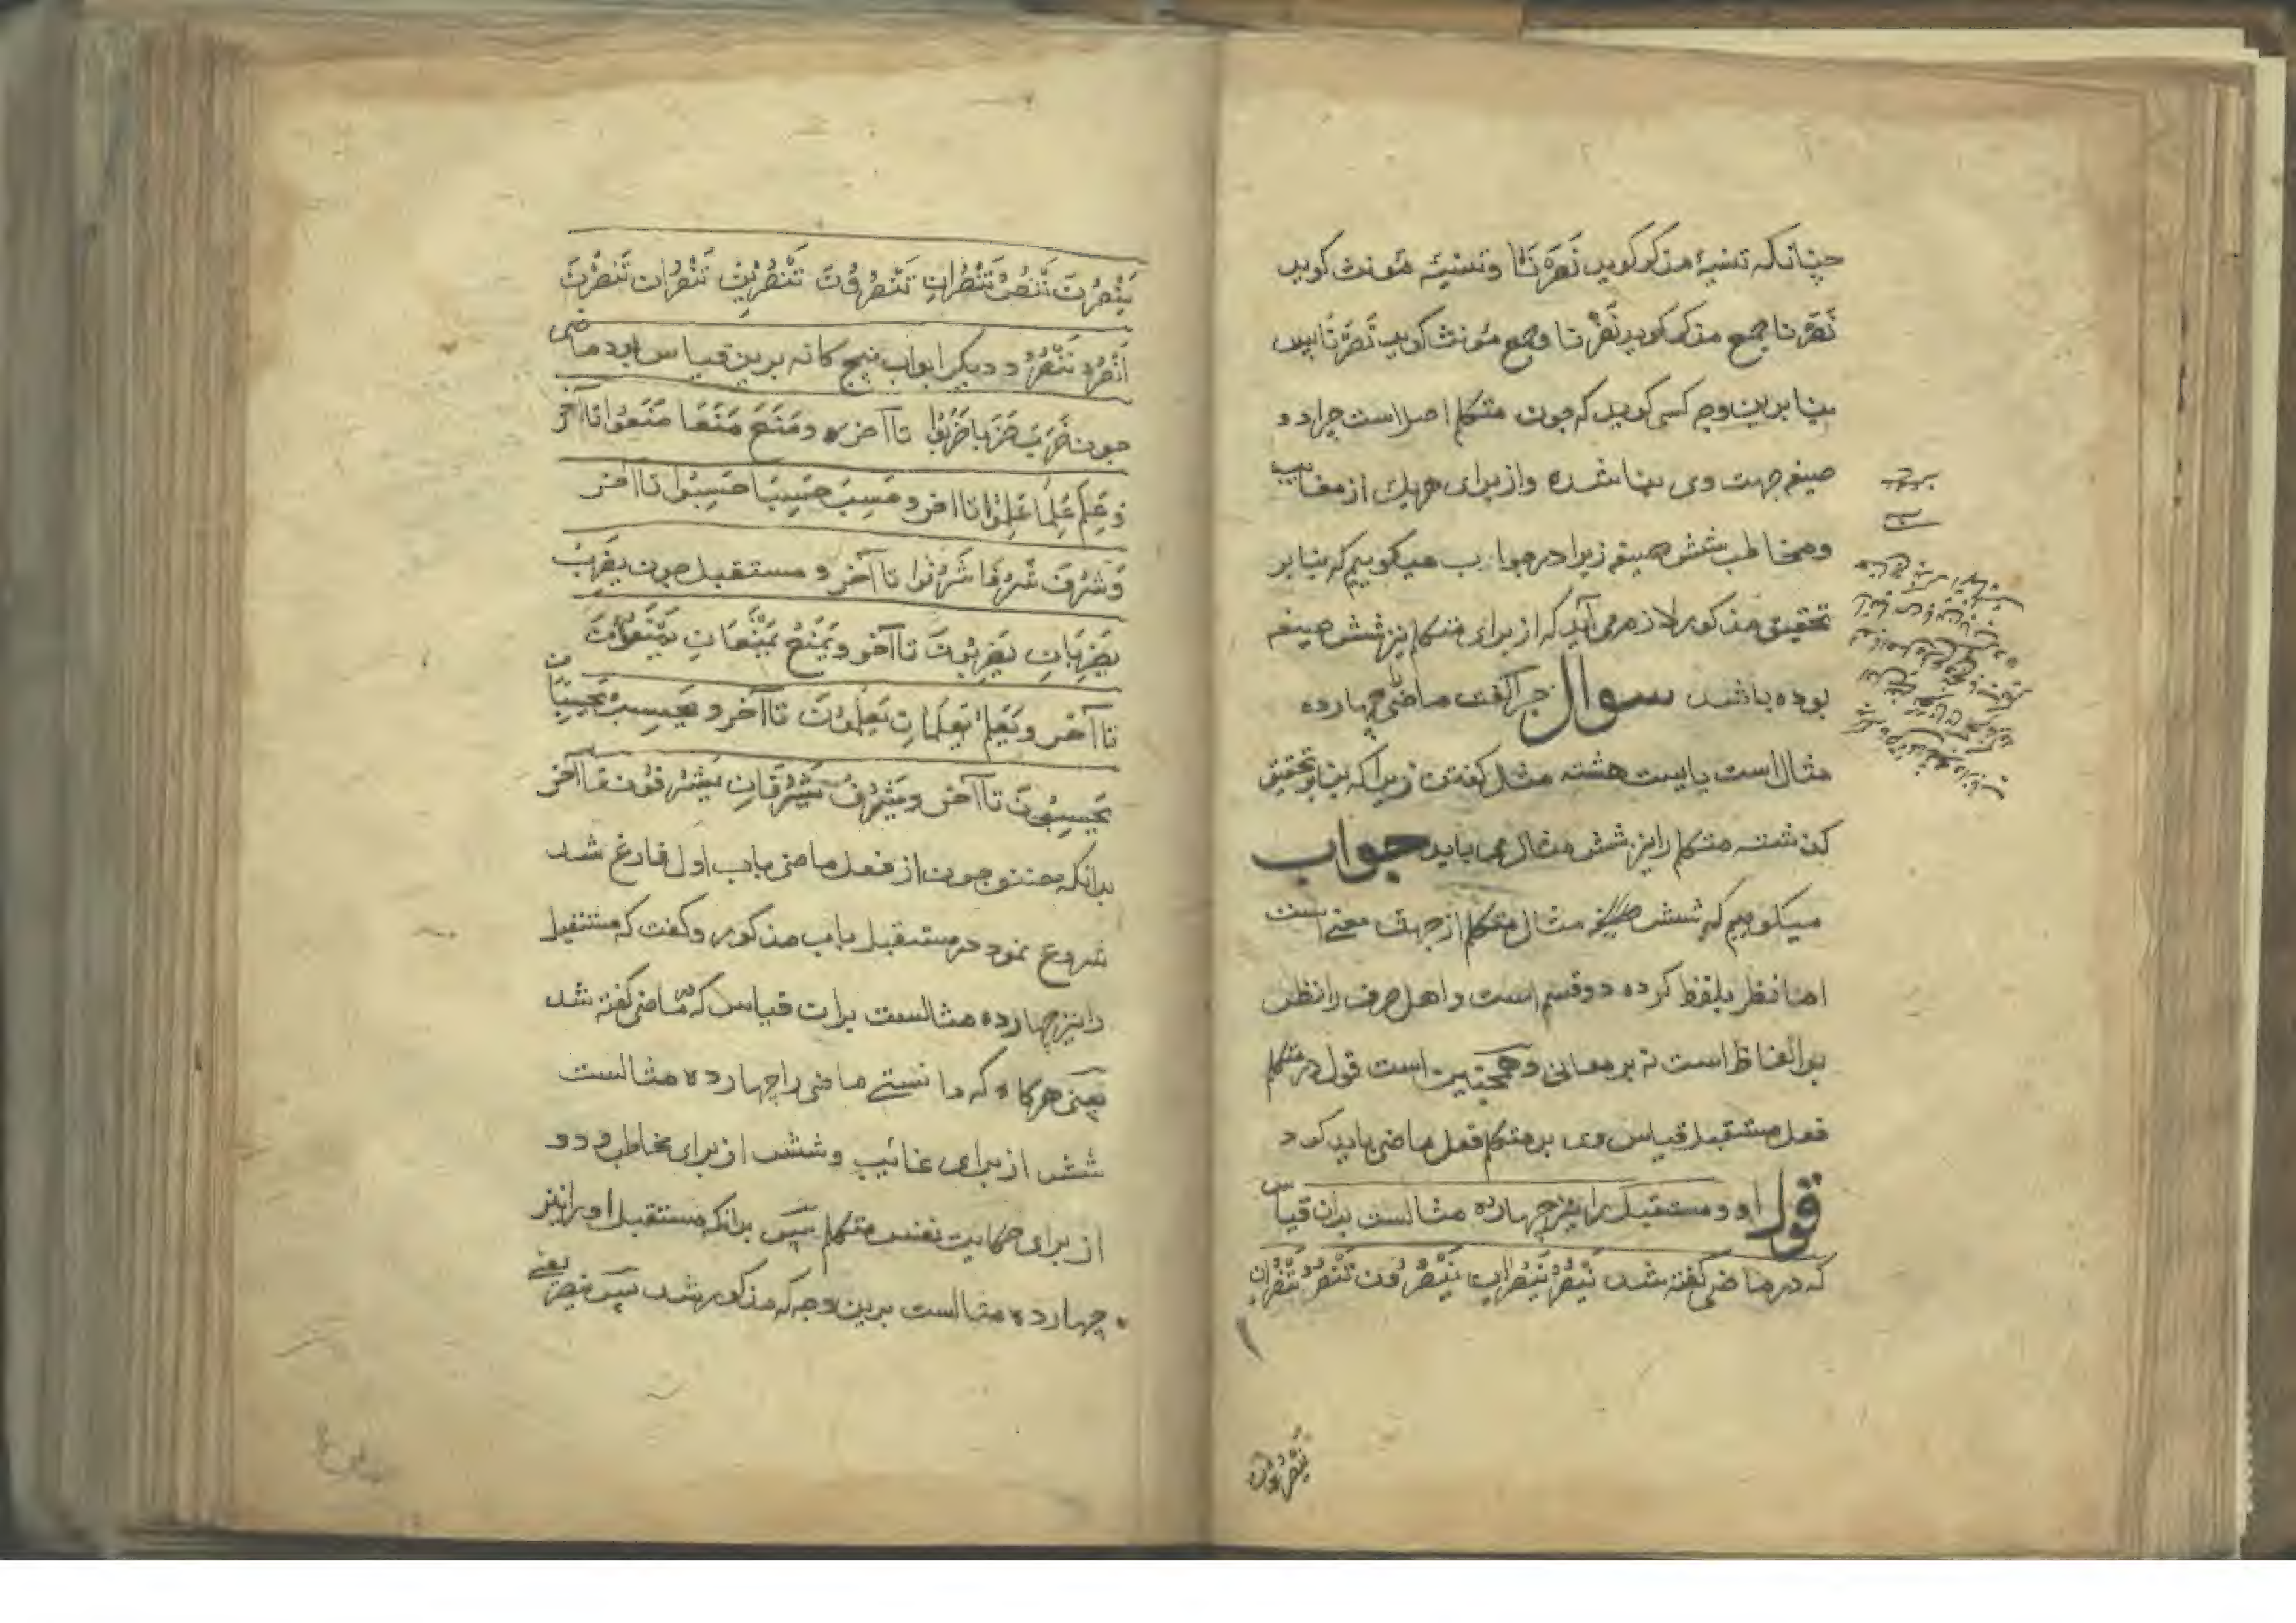 چنانکه تثنیهٔ مذکر کوید نَصَرَتا و تثنیه مؤنث کوید
نَصَرنا جمع مذکر کوید نَصَرْنا و جمع مؤنث کوید نَصَرْنا پس
بنا برین وجه کسی کوید که چون متکلم اصل است چرا دو
صیغه جهت وی بنا شده و از برای هریك از مغایب
و مخاطب شش صیغه زیرا در جواب میکوییم که بنا بر
تحقیق مذکور لازم می آید که از برای متکلم نیز شش صیغه
بوده باشد سوال چرا کفت ماضی را چهارده
مثال است بایست هشته مثل کفتی زیرا که بنا بر تحقیق
کذشته متکلم را نیز شش مثال می باید جواب
میکوییم که شش مثال متکلم از جهت معنی است
اما نظر بلفظ کرده دو قسم است و اهل صرف را نظر
بر الفاظ است نه بر معانی و همچنین است قول در متکلم
فعل مستقبل قیاس وی بر متکلم فعل ماضی باید کرد
قول او و مستقبل را نیز چهارده مثالست بدان قیاس
که در ماضی کفته شد یَنْصُرُ یَنْصُرانِ یَنْصُرُونَ تَنْصُرُ تَنْصُرانِ
یَنْصُرْنَ
یَنْصُرْنَ تَنْصُرُ تَنْصُرانِ تَنْصُرُونَ تَنْصُرِینَ تَنْصُرانِ تَنْصُرْنَ
اَنْصُرُ نَنْصُرُ و دیکر ابواب پنج کانه برین قیاس بود ماضی
چون ضَرَبَ ضَرَبا ضَرَبُوا تا آخره و مَنَعَ مَنَعَا مَنَعُوا تا آخر
وَ عَلِمَ عَلِمَا عَلِمُوا تا آخر و حَسِبَ حَسِبَا حَسِبُوا تا آخر
وَ شَرُفَ شَرُفَا شَرُفُوا تا آخر و مستقبل چون یَضْرِبُ
یَضْرِبَانِ یَضْرِبُونَ تا آخر و یَمْنَعُ یَمْنَعَانِ یَمْنَعُونَ
تا آخر و یَعْلَمُ یَعْلَمَانِ یَعْلَمُونَ تا آخر و یَحْسِبُ یَحْسِبَانِ
یَحْسِبُونَ تا آخر و یَشْرُفُ یَشْرُفَانِ یَشْرُفُونَ تا آخر
بدانکه چون از فعل ماضی باب اول فارغ شد
شروع نمود در مستقبل باب مذکور و کفت که مستقبل
را نیز چهارده مثالست بران قیاس که در ماضی کفته شد
یعنی هرکاه که دانستی ماضی را چهارده مثالست
شش از برای غائب و شش از برای مخاطب و دو
از برای حکایت نفس متکلم پس بدانکه مستقبل او را نیز
چهارده مثالست برین وجه که مذکور شد پس ینصر یعنی